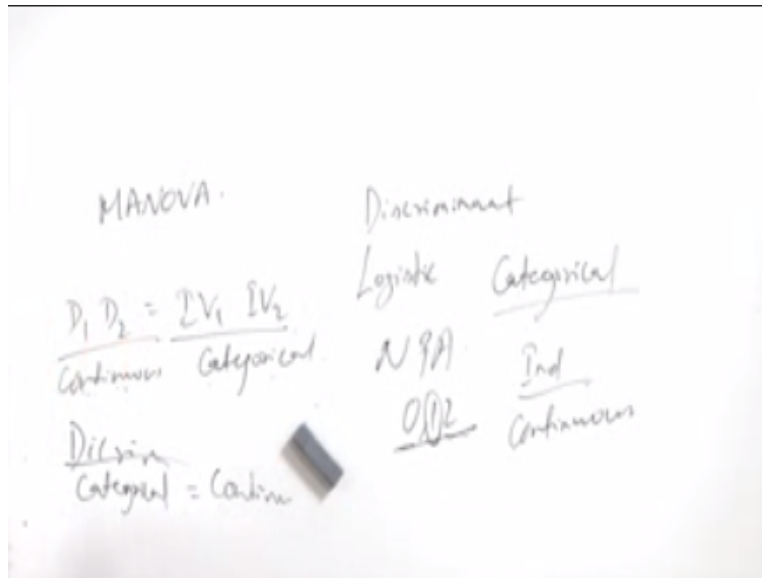 MANOVA.
D₁ D₂ = IV₁ IV₂
Continuous Categorical
Discrim
Categorical = Contin
Discriminant
Logistic Categorical
NPA Ind
0 1 2 Continuous